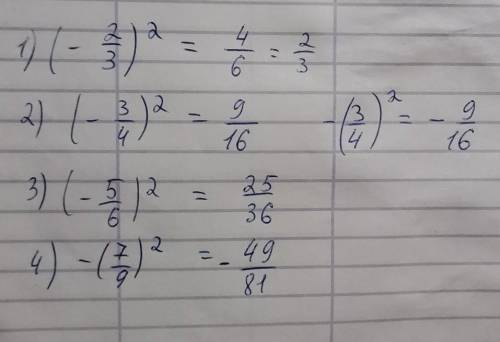 1) (- 2/3)^2 = 4/6 = 2/3
2) (- 3/4)^2 = 9/16 -(3/4)^2 = - 9/16
3) (- 5/6)^2 = 25/36
4) -(7/9)^2 = - 49/81